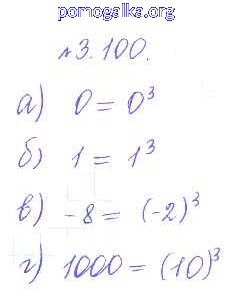 pomogalka.org
№3.100.
а) 0 = 0³
б) 1 = 1³
в) -8 = (-2)³
г) 1000 = (10)³